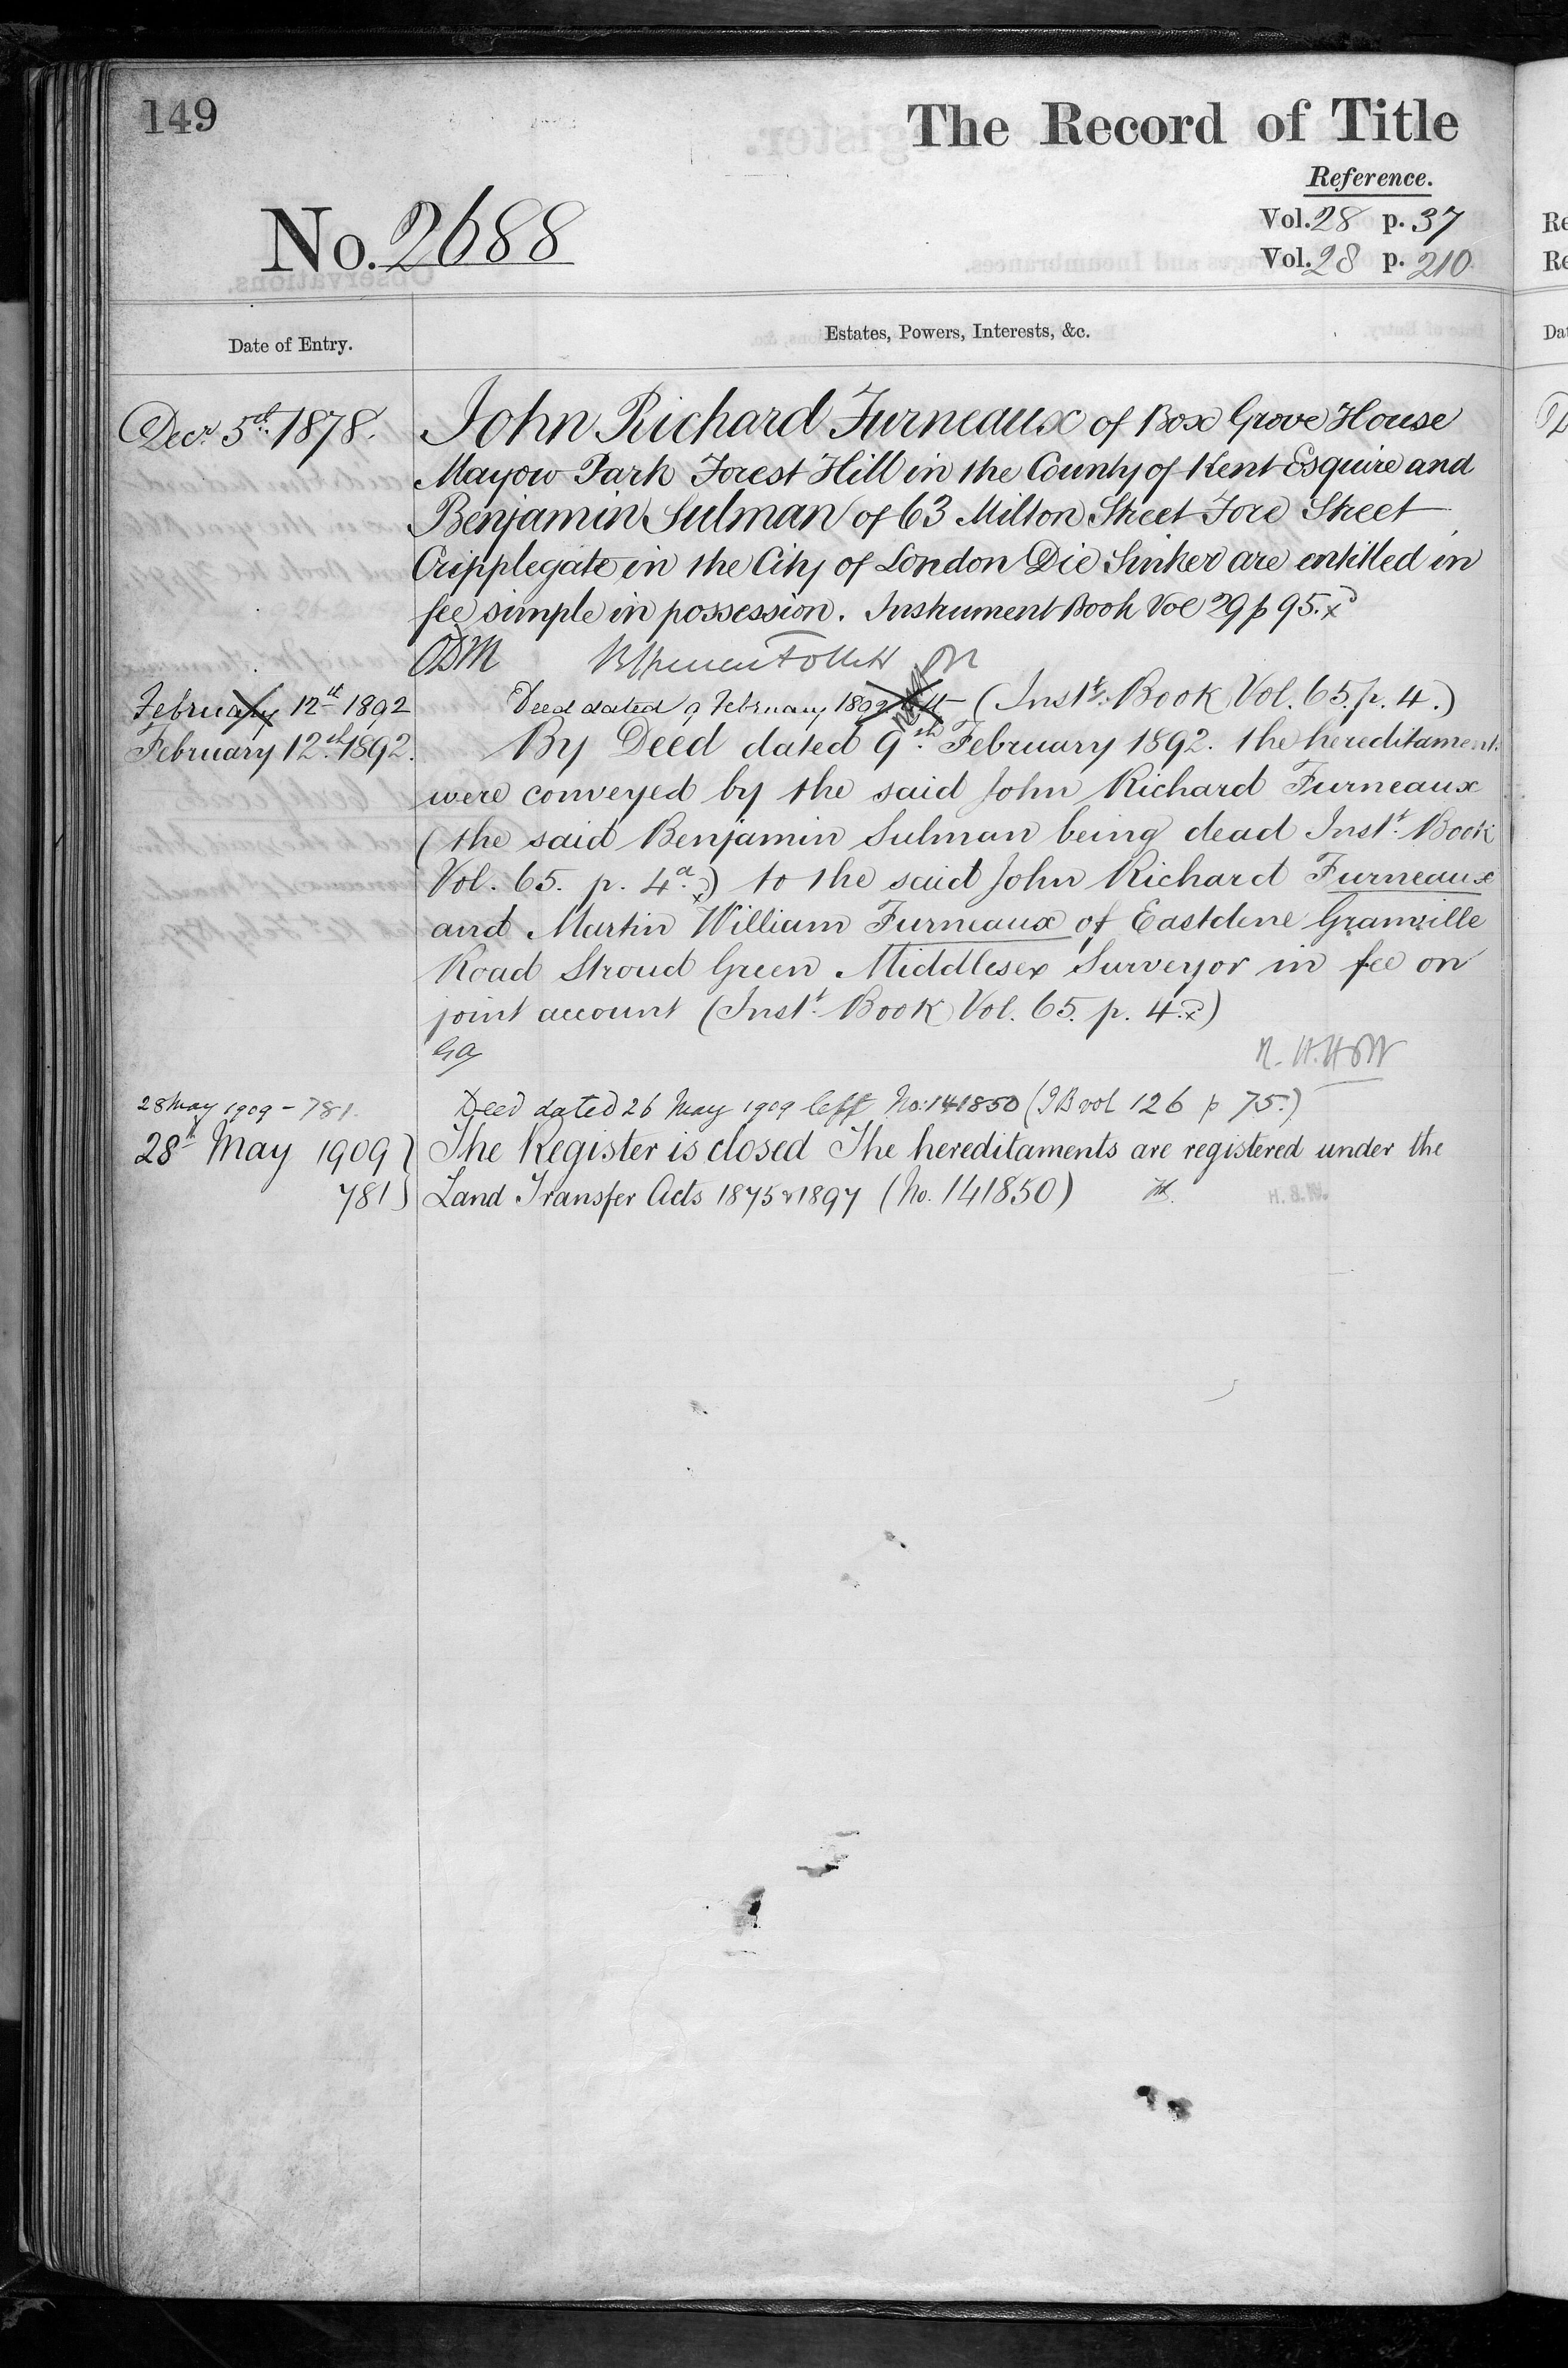 149
The Record of Title
Reference.
No. 2688
Vol. 28 p. 37
Vol. 28 p. 210
Date of Entry.
Estates, Powers, Interests, &c.
Decr. 5th. 1878.
John Richard Furneaux of Box Grove House
Mayow Park Forest Hill in the County of Kent Esquire and
Benjamin Sulman of 63 Milton Street Fore Street
Cripplegate in the City of London Die Sinker are entitled in
fee simple in possession. Instrument Book Vol 29 p 95.
February 12th 1892
Deed dated 9 February 1892 (Instt. Book Vol. 65. p. 4.)
February 12th. 1892.
By Deed dated 9th. February 1892. the hereditaments
were conveyed by the said John Richard Furneaux
(the said Benjamin Sulman being dead Instt. Book
Vol. 65. p. 4a.) to the said John Richard Furneaux
and Martin William Furneaux of Eastdene Granville
Road Stroud Green Middlesex Surveyor in fee on
joint account (Instt. Book Vol. 65. p. 4.)
28 May 1909 - 781.
Deed dated 26 May 1909 left No: 141850 (IB vol 126 p 75.)
28th May 1909
781
The Register is closed The hereditaments are registered under the
Land Transfer Acts 1875 & 1897 (No. 141850)
H.B.W.
Re
Re
Da